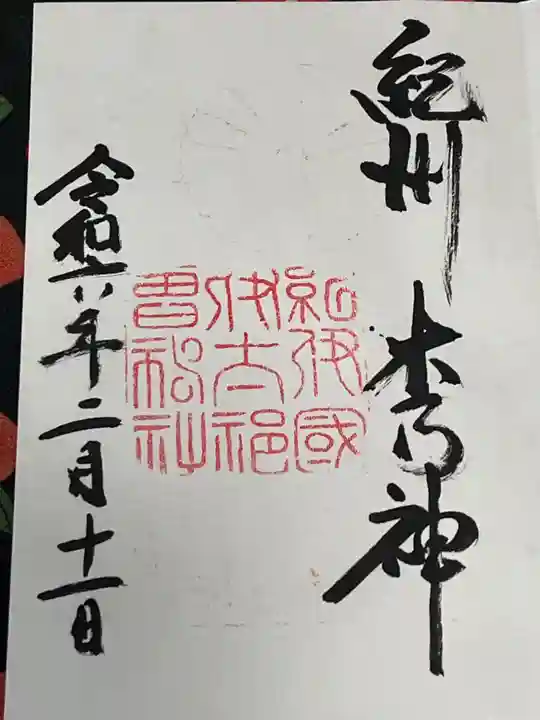 紀州
木の神
紀伊國
伊太祁
曽神社
令和六年二月十一日